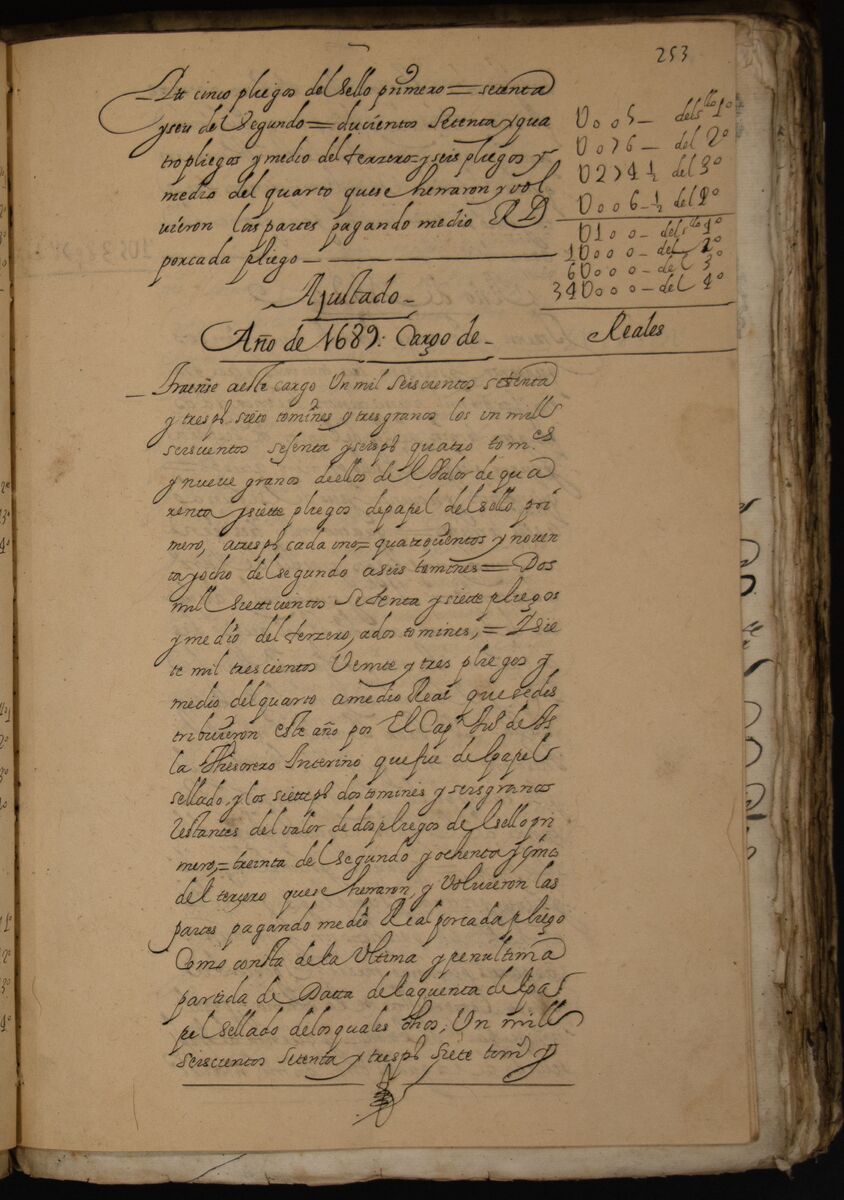 253
cinco pliegos del sello primero = setenta
y seis del segundo = ducientos setenta y qua
tro pliegos y medio del terzero = y seis pliegos y
medio del quarto que se herraron y vol
uieron las partes pagando medio R D
por cada pliego —
U005 — del sllo 1º
U076 — del 2º
U274 ½ del 3º
U006 — ½ del 4º
U100 — del sllo 1º
1U000 — del 2º
6U000 — del 3º
34U000 — del 4º
Ajustado —
Año de 1689: Cargo de — Reales
— Traense a este cargo Un mil seiscientos setenta
y tres ps siete tomines y tres granos los un mill
seiscientos sesenta y seis ps quatro tomes
y nueve granos de ellos de el Valor de qua
renta y siette pliegos de papel del sello pri
mero, a tres ps cada uno = quatrocientos y noven
ta y ocho del segundo a seis tomines = Dos
mill siettecientos Setenta y siete pliegos
y medio del terzero, a dos tomines, = Y sie
te mil trescientos Veinte y tres pliegos y
medio del quarto a medio Real que se dis
tribuieron este año por El Capn de Is
la Thesorero Interino que fue de el papel
sellado, y los siette ps dos tomines y seis granos
restantes del valor de dos pliegos de el sello pri
mero, = treinta del segundo y ochenta y cinco
del terçero que se herraron, y Voluieron las
partes pagando medio Real por cada pliego
Como consta de la Ultima y penultima
partida de Datta de la quenta de el pa-
pel sellado de los quales dhos, Un mill
seiscientos setenta y tres ps siete tomi y